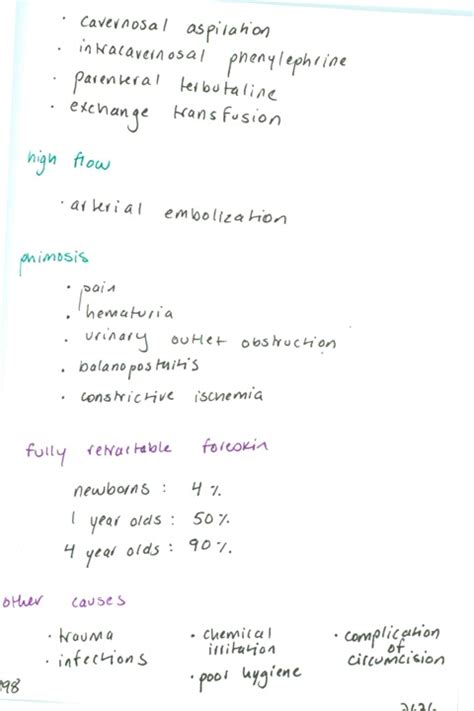 · cavernosal aspiration
· intracavernosal phenylephrine
· parenteral terbutaline
· exchange transfusion
high flow
· arterial embolization
phimosis
· pain
· hematuria
· urinary outlet obstruction
· balanoposthitis
· constrictive ischemia
fully retractable foreskin
newborns : 4 %
1 year olds : 50 %
4 year olds : 90 %
other causes
· trauma
· infections
· chemical
irritation
· poor hygiene
· complication
of
circumcision
98